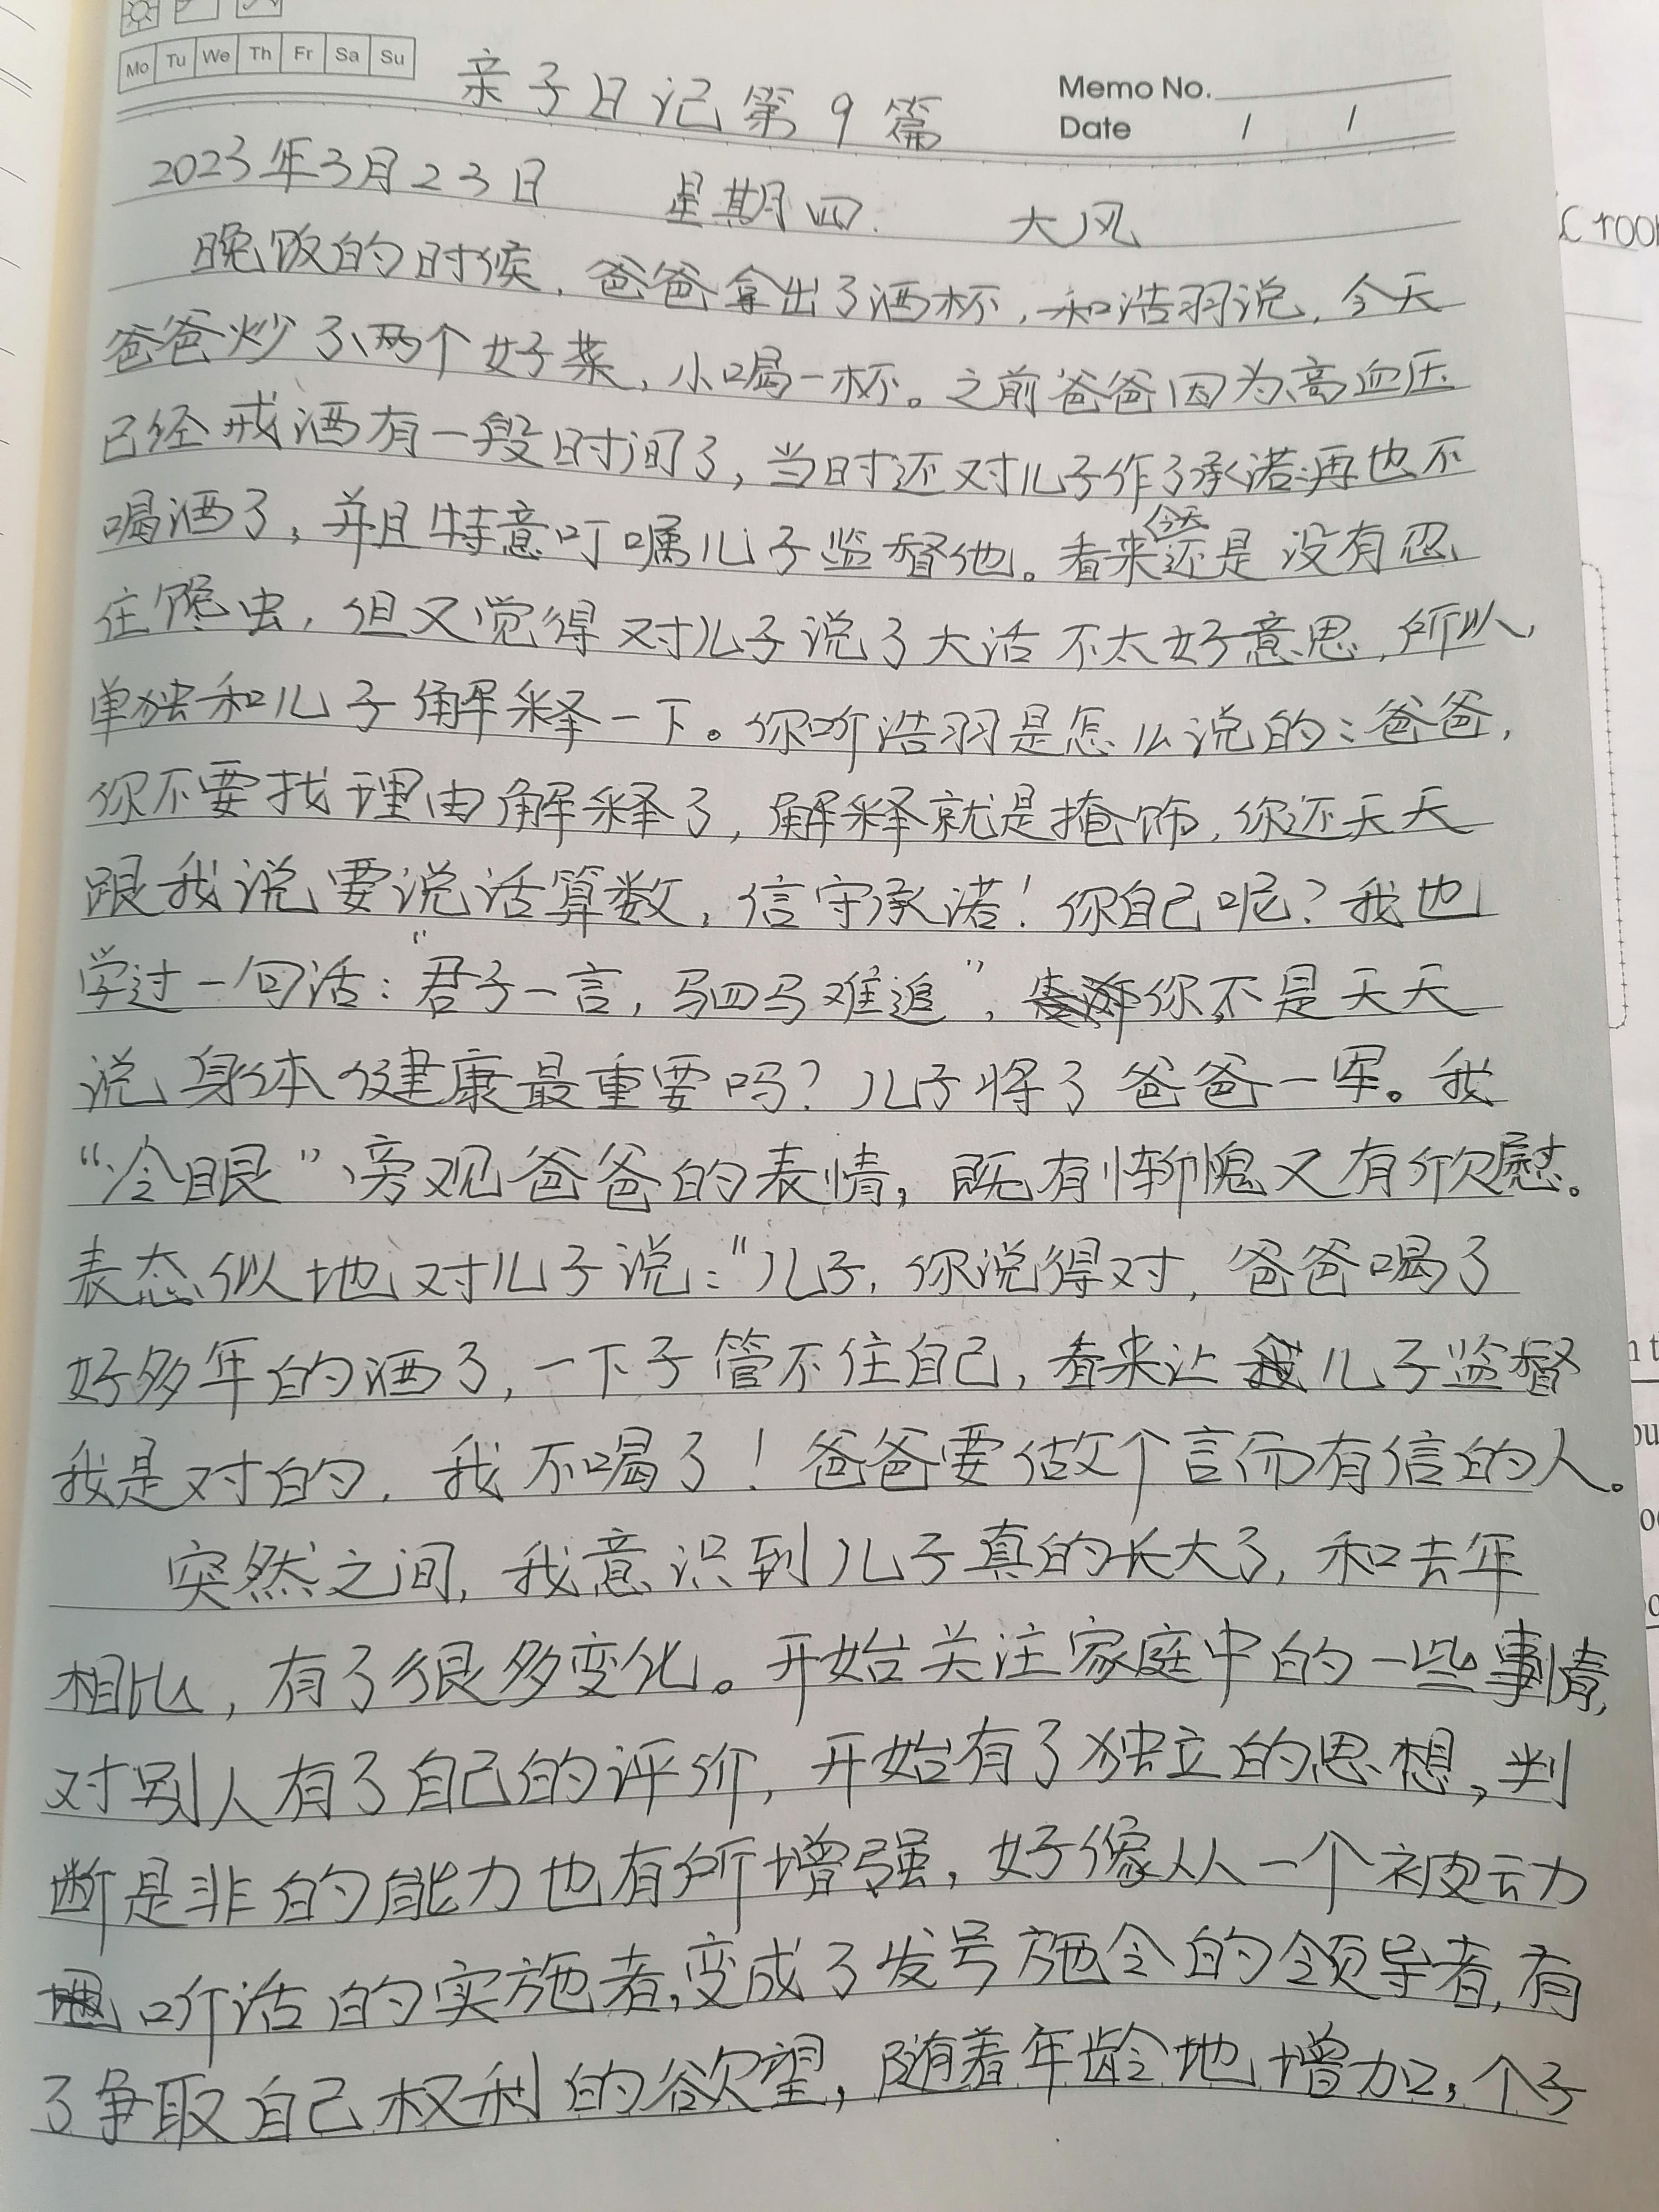 Mo Tu We Th Fr Sa Su
亲子日记第9篇
Memo No.
Date / /
2023年3月23日 星期四. 大风
晚饭的时候，爸爸拿出了酒杯，和浩羽说，今天
爸爸炒了两个好菜，小喝一杯。之前爸爸因为高血压
已经戒酒有一段时间了，当时还对儿子作了承诺:再也不
喝酒了，并且特意叮嘱儿子监督他。看来今天还是没有忍
住馋虫，但又觉得对儿子说了大话不太好意思，所以
单独和儿子解释一下。你听浩羽是怎么说的：爸爸，
你不要找理由解释了，解释就是掩饰，你还天天
跟我说要说话算数，信守承诺！你自己呢？我也
学过一句话：“君子一言，驷马难追”，你不是天天
说身体健康最重要吗？儿子将了爸爸一军。我
“冷眼”旁观爸爸的表情，既有惭愧又有欣慰。
表态似地对儿子说：“儿子，你说得对，爸爸喝了
好多年的酒了，一下子管不住自己，看来让儿子监督
我是对的，我不喝了！爸爸要做个言而有信的人。
突然之间，我意识到儿子真的长大了，和去年
相比，有了很多变化。开始关注家庭中的一些事情，
对别人有了自己的评价，开始有了独立的思想，判
断是非的能力也有所增强，好像从一个被动
听话的实施者，变成了发号施令的领导者，有
了争取自己权利的欲望，随着年龄地增加，个子
C room